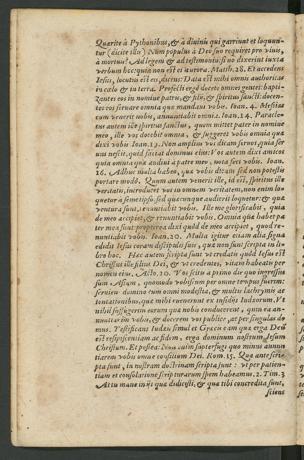 Quærite à Pythonibus, & à diuinis qui garriunt et loquuntur
(dicite illis) Num populus à Deo suo requiret pro viuis,
à mortuis? Ad legem & ad testimonium: si no dixerint iuxta
verbum hoc: quia non est ei aurora. Matth. 28. Et accedens
Iesus, locutus est eis, dicens: Data est mihi omnis authoritas
in cælo & in terra. Profecti ergo docete omnes gentes: baptizantes
eos in nomine patris, & filij, & spiritus sancti: docentes
eos seruare omnia quæ mandaui vobis. Ioan. 4. Messias
cum venerit nobis, annuntiabit omnia. Ioan. 14. Paracletus
autem ille spiritus sanctus, quem mittet pater in nomine
meo, ille vos docebit omnia, & suggeret vobis omnia quæ
dixi vobis. Ioan. 15. Non amplius vos dicam seruos, quia seruus
nescit, quid faciat dominus eius: Vos autem dixi amicos
quia omnia quæ audiui à patre meo, nota feci vobis. Ioan.
16. Adhuc multa habeo, quæ vobis dicam sed non potestis
portare modò. Quum autem venerit ille, id est, spiritus ille
veritatis, introducet vos in omnem veritatem, non enim loquetur
à semetipso sed quæcunque audierit loquetur: & quæ
ventura sunt, renuntiabit vobis. Ille me glorificabit, quia
de meo accipiet, & renuntiabit vobis. Omnia quæ habet pater
mea sunt propterea dixi quòd de meo accipiet, quod renuntiabit
vobis. Ioan. 20. Multa igitur etiam alia signa
edidit Iesus coram discipulis suis, quæ non sunt scripta in libro
hoc. Hæc autem scripta sunt vt credatis quòd Iesus est
Christus ille filius Dei, & vt credentes, vitam habeatis per
nomen eius. Acto. 20. Vos scitis à primo die quo ingressus
sum Asiam, quomodo vobiscum per omne tempus fuerim:
seruiens domino cum omni modestia, & multis lachrymis ac
tentationibus, quæ mihi euenerunt ex insidijs Iudæorum. Vt
nihil suffugerim eorum quæ vobis conducerent, quin ea annuntiarim
vobis, & docerem vos publicè, ac per singulas domus.
Testificans Iudæis simul et Græcis eam quæ erga Deum
est resipiscentiam ac fidem, erga dominum nostrum Iesum
Christum. Et postea: Non enim subterfugi quo minus annuntiarem
vobis omne consilium Dei. Rom. 15. Quæ ante scripta
sunt, in nostram doctrinam scripta sunt: vt per patientiam
et consolationē scripturarum spem habeamus. 2. Tim. 3
At tu mane in ijs quæ didicisti, & quæ tibi concredita sunt,
sciens